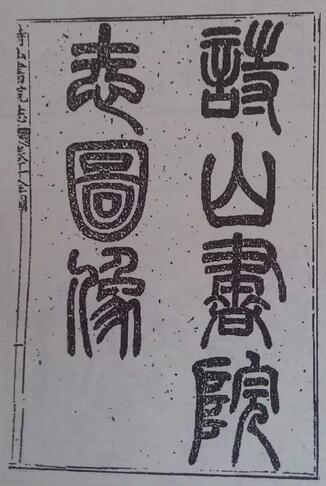 詩山書院
志圖像